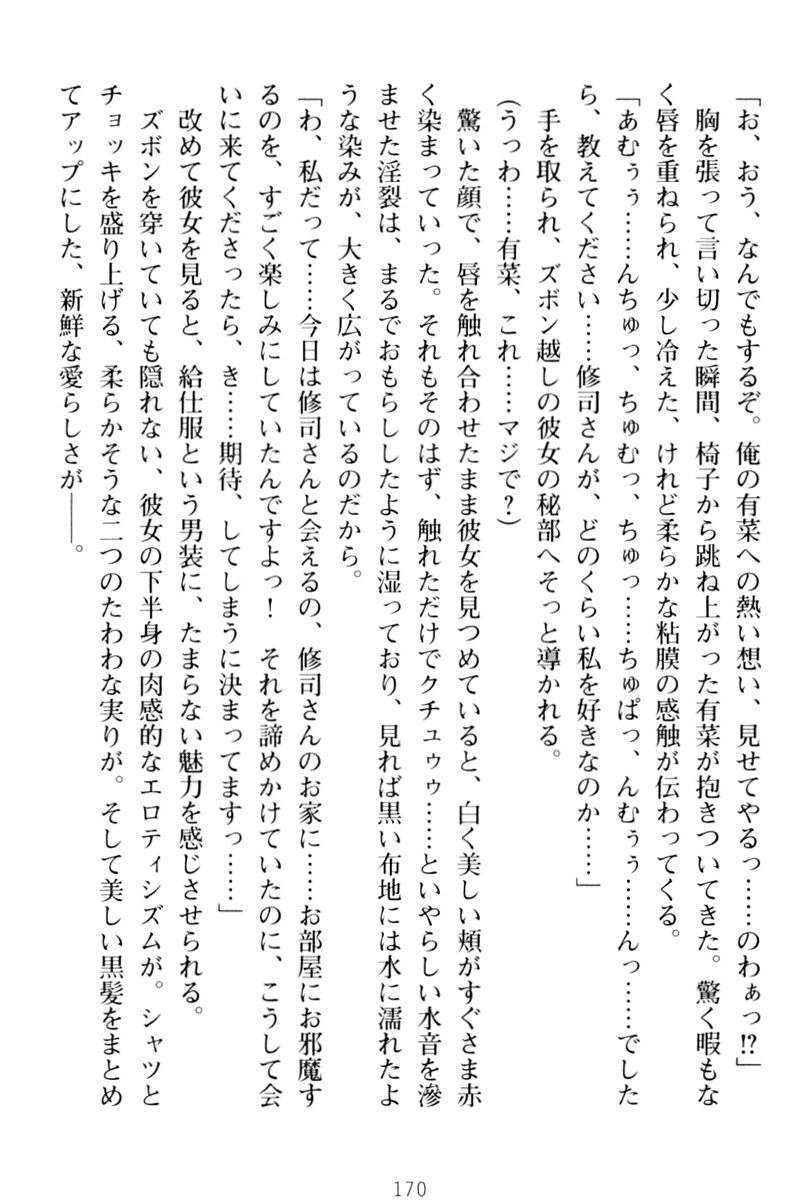 「お、おう、なんでもするぞ。俺の有菜への熱い想い、見せてやるっ……のわぁっ!?」
　胸を張って言い切った瞬間、椅子から跳ね上がった有菜が抱きついてきた。驚く暇もな
く唇を重ねられ、少し冷えた、けれど柔らかな粘膜の感触が伝わってくる。
「あむぅぅ……んちゅっ、ちゅむっ、ちゅっ……ちゅぱっ、んむぅぅ……んっ……でした
ら、教えてください……修司さんが、どのくらい私を好きなのか……」
　手を取られ、ズボン越しの彼女の秘部へそっと導かれる。
(うっわ……有菜、これ……マジで？)
　驚いた顔で、唇を触れ合わせたまま彼女を見つめていると、白く美しい頬がすぐさま赤
く染まっていった。それもそのはず、触れただけでクチュゥゥ……といやらしい水音を滲
ませた淫裂は、まるでおもらししたように湿っており、見れば黒い布地には水に濡れたよ
うな染みが、大きく広がっているのだから。
「わ、私だって……今日は修司さんと会えるの、修司さんのお家に……お部屋にお邪魔す
るのを、すごく楽しみにしていたんですよっ！　それを諦めかけていたのに、こうして会
いに来てくださったら、き……期待、してしまうに決まってますっ……」
　改めて彼女を見ると、給仕服という男装に、たまらない魅力を感じさせられる。
　ズボンを穿いていても隠れない、彼女の下半身の肉感的なエロティシズムが。シャツと
チョッキを盛り上げる、柔らかそうな二つのたわわな実りが。そして美しい黒髪をまとめ
てアップにした、新鮮な愛らしさが――。
170